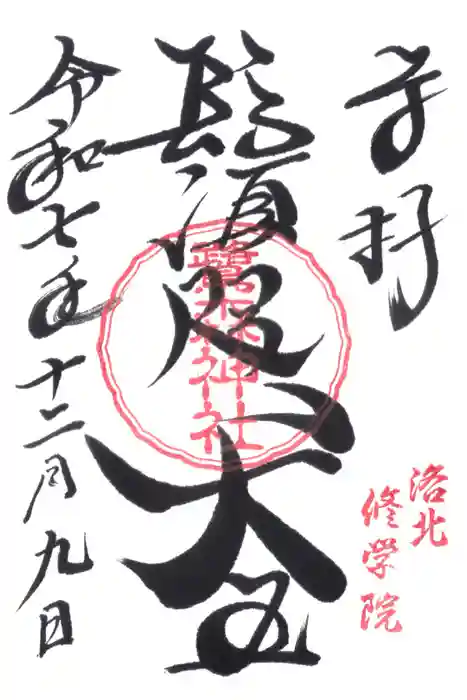 奉拝
洛北
修学院
鬚咫天王
鷺森神社
令和七年十二月九日